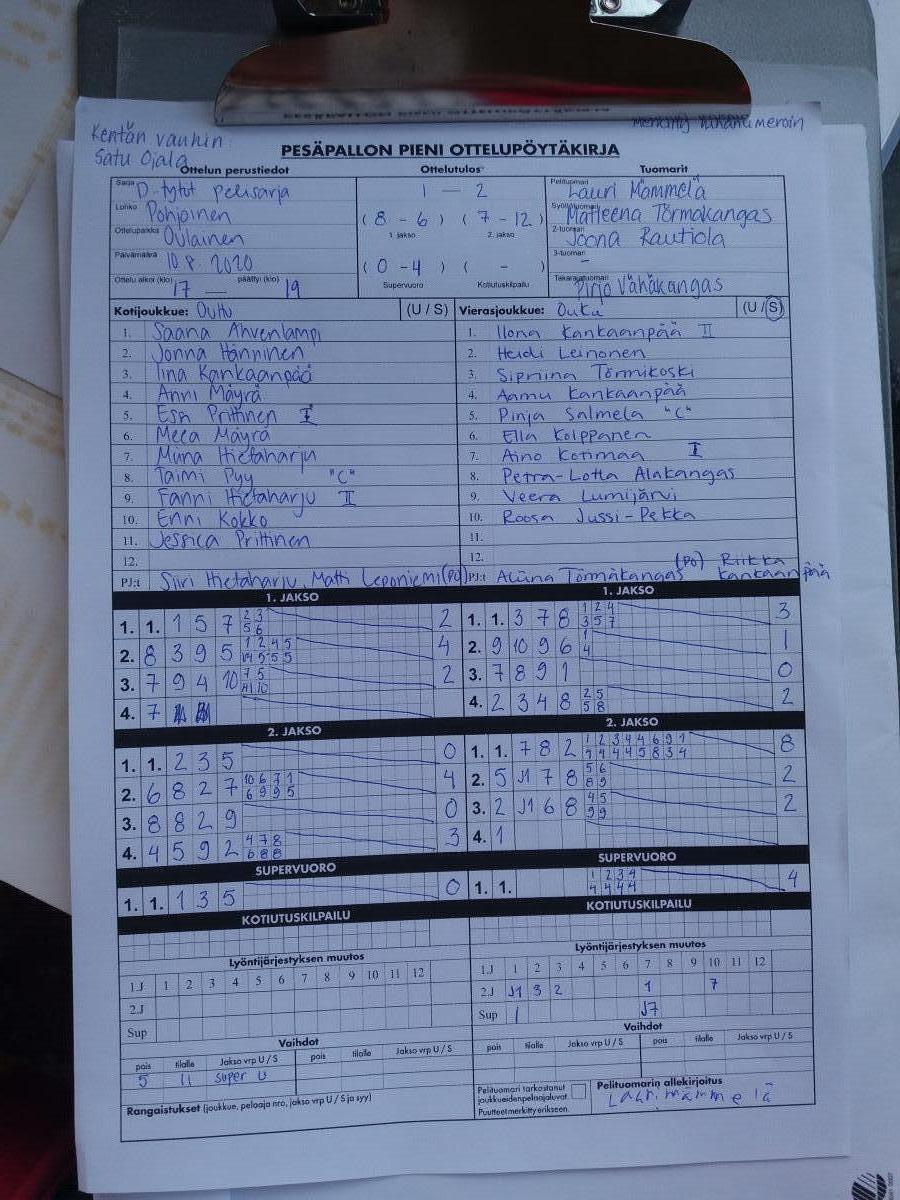 Kentän vauhin:
Satu Ojala
PESÄPALLON PIENI OTTELUPÖYTÄKIRJA
Ottelun perustiedot
Sarja D-tytöt pelisarja
Lohko Pohjoinen
Ottelupaikka Oulainen
Päivämäärä 10.8.2020
Ottelu alkoi (klo) 17 päättyi (klo) 19
Ottelutulos
1 — 2
( 8 - 6 ) ( 7 - 12 )
1. jakso 2. jakso
( 0 - 4 ) ( - )
Supervuoro Kotiutuskilpailu
Tuomarit
Pelituomari Lauri Mömmelä
Syöttötuomari Matleena Törmäkangas
2-tuomari Joona Rautiola
3-tuomari -
Takarajatuomari Pirjo Vähäkangas
Kotijoukkue: Outu (U / S)
1. Saana Ahvenlampi
2. Jonna Hänninen
3. Iina Kankaanpää
4. Anni Mäyrä
5. Esn Prittinen I
6. Meea Mäyrä
7. Minna Hietaharju
8. Taimi Pyy "C"
9. Fanni Hietaharju II
10. Enni Kokko
11. Jessica Prittinen
12.
PJ:t Siiri Hietaharju, Matti Leponiemi (PO)
Vierasjoukkue: Ouku (U / S)
1. Ilona Kankaanpää II
2. Heidi Leinonen
3. Sipriina Törmikoski
4. Aamu Kankaanpää
5. Pinja Salmela "C"
6. Ella Kolppanen
7. Aino Kotimaa I
8. Petra-Lotta Alakangas
9. Veera Lumijärvi
10. Roosa Jussi-Pekka
11.
12.
PJ:t Aliina Törmäkangas (PO) Riikka Kankaanpää
1. JAKSO
1. 1. 1 5 7 2 3 2
5 6
2. 8 3 9 5 1 2 4 5 4
3. 7 9 4 10 7 5 2
4. 7
1. JAKSO
1. 1. 3 7 8 1 2 4 3
3 5 7
2. 9 10 9 6 1 1
4
3. 7 8 9 1 0
4. 2 3 4 8 2 5 2
5 8
2. JAKSO
1. 1. 2 3 5 0
2. 6 8 2 7 10 6 7 1 4
6 9 9 5
3. 8 8 2 9 0
4. 4 5 9 2 4 7 8 3
6 8 8
2. JAKSO
1. 1. 7 8 2 1 2 3 4 4 6 9 1 8
2. 5 J1 7 8 5 6 2
8 9
3. 2 J1 6 8 4 5 2
9 9
4. 1
SUPERVUORO
1. 1. 1 3 5 0
SUPERVUORO
1. 1. 1 2 3 4 4
4 4 4 4
KOTIUTUSKILPAILU
KOTIUTUSKILPAILU
Lyöntijärjestyksen muutos
1.J 1 2 3 4 5 6 7 8 9 10 11 12
2.J
Sup
Lyöntijärjestyksen muutos
1.J 1 2 3 4 5 6 7 8 9 10 11 12
2.J J1 3 2 1 7
Sup 1 J7
Vaihdot
pois tilalle Jakso vrp U / S pois tilalle Jakso vrp U / S
5 11 super U
Rangaistukset (joukkue, pelaaja nro, jakso vrp U / S ja syy)
Vaihdot
pois tilalle Jakso vrp U / S pois tilalle Jakso vrp U / S
Pelituomari tarkastanut
joukkueidenpelaajaluvat.
Puutteet merkitty erikseen.
Pelituomarin allekirjoitus
Lauri mämmelä